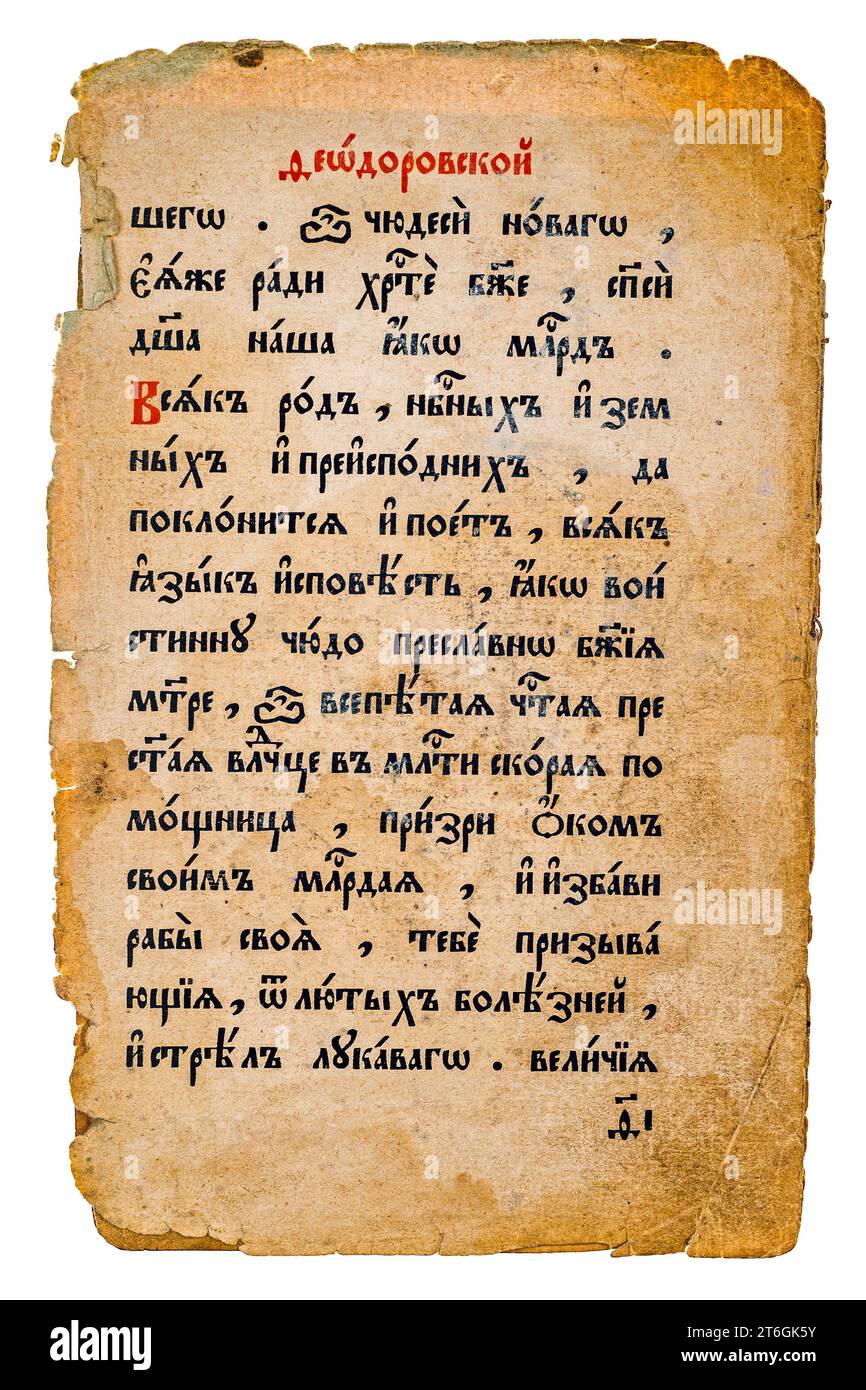 Ѳеѡ́доровской
шегѡ . Ѽ чюдесѝ но́вагѡ ,
є҆ѧ́же ра́ди хрⷭ҇тѐ бж҃е , сп҃сѝ
дш҃а на́ша ꙗ҆́кѡ млⷭ҇рдъ .
Всѧ́къ ро́дъ , нбⷭ҇ныхъ и҆ зем
ны́хъ и҆ преи҆спо́днихъ , да
покло́нитсѧ и҆ пое́тъ , всѧ́къ
ꙗ҆зы́къ и҆сповѣ́сть , ꙗ҆́кѡ вои́
стиннꙋ чю́до пресла́внѡ бж҃їѧ
мт҃ре , Ѽ всепѣ́таѧ чⷭ҇таѧ пре
ст҃аѧ влⷣчце въ млⷭ҇ти ско́раѧ по
мо́щница , при́зри ѻ҆́комъ
свои́мъ млⷭ҇рдаѧ , и҆ и҆зба́ви
рабы̀ своѧ̀ , тебѐ призыва́
ющїѧ , ѿ лю́тыхъ болѣ́зней ,
и҆ стрѣ́лъ лꙋка́вагѡ . вели́чїѧ
ѳ҃і
alamy
Image ID: 2T6GK5Y
www.alamy.com